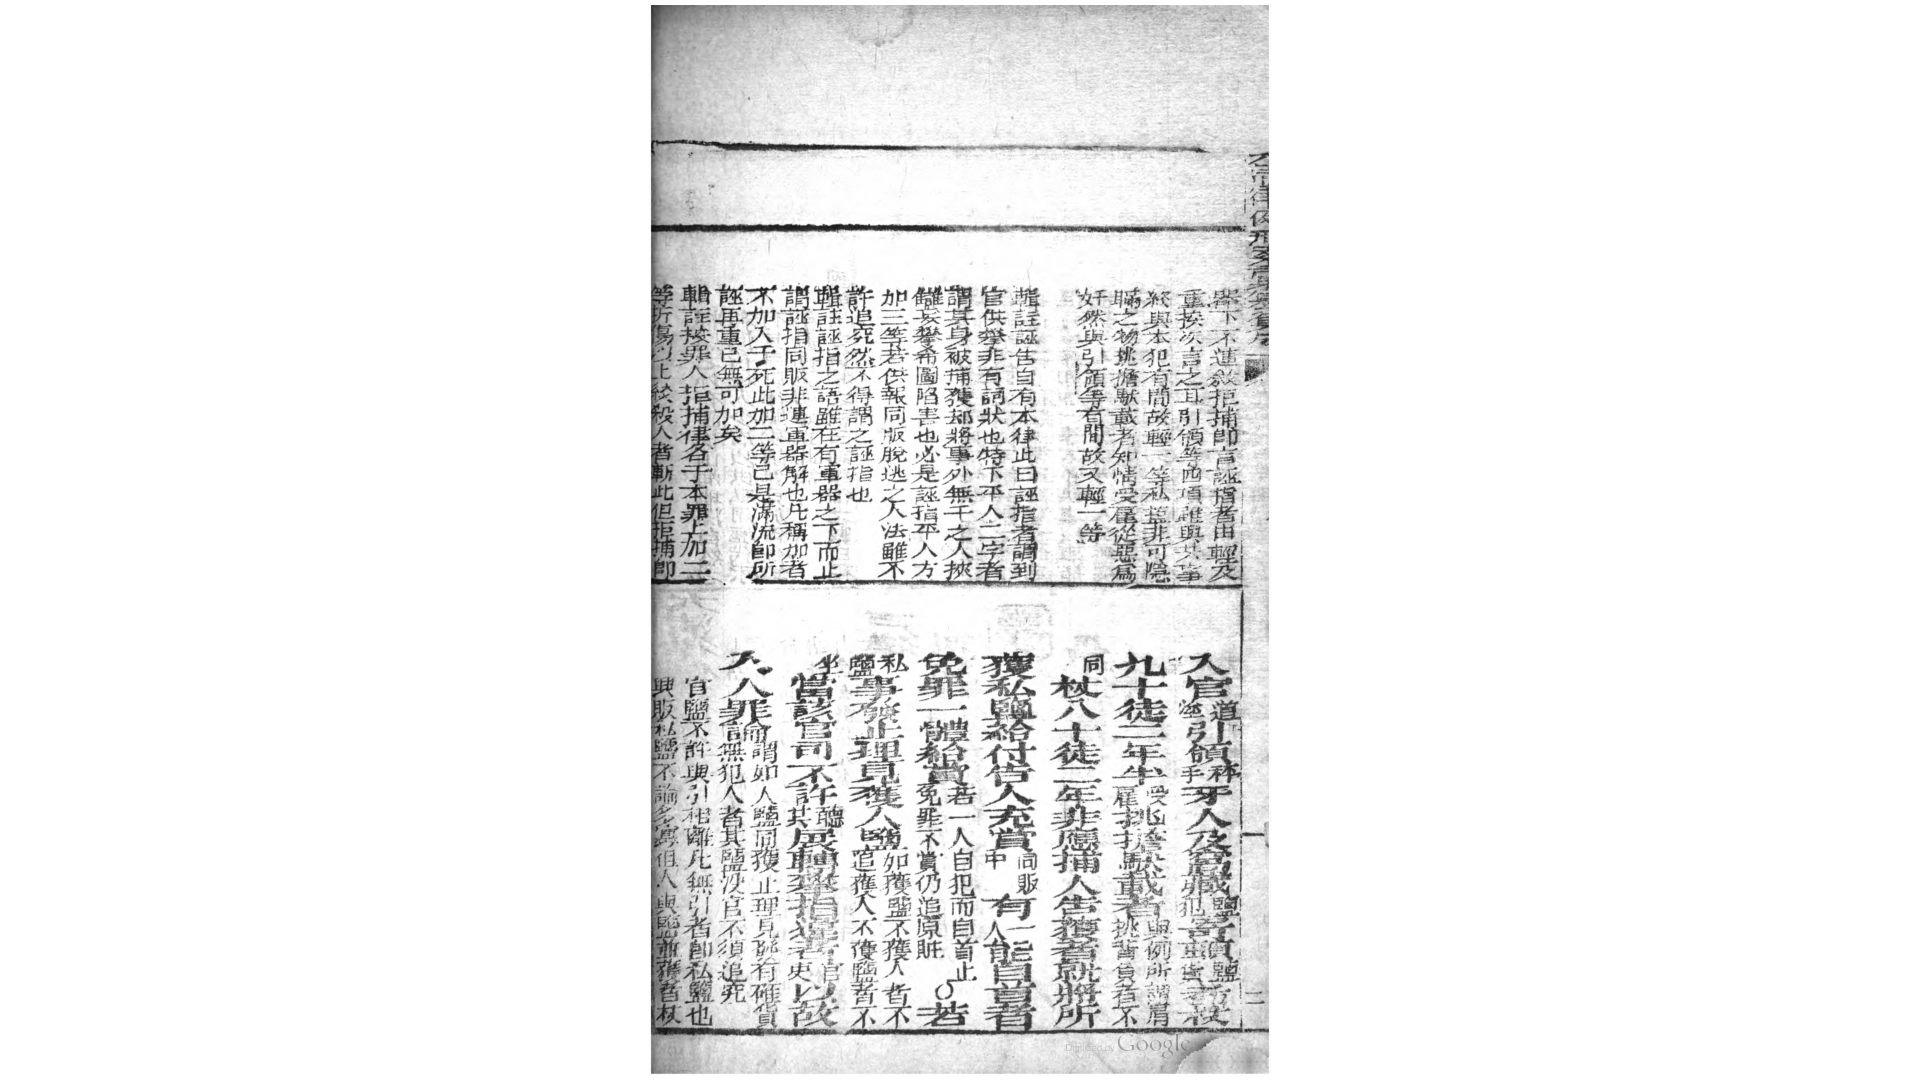 器下不進敘拒捕即言誣指者由輕及
重挨次言之耳引領等兩項雖與共事
終與本犯有間故輕一等私鹽非可隱
瞞之物挑擔馱載者知情受雇從惡為
奸然與引領等有間故又輕一等
輯註誣告自有本律此曰誣指者謂到
官供攀非有詞狀也特下平人二字者
謂其身被捕獲却將事外無干之人挾
讎妄攀希圖陷害也必是誣指平人方
加三等若供報同販脫逃之人法雖不
許追究然不得謂之誣指也
輯註誣指之語雖在有軍器之下而止
謂誣指同販非連軍器解也凡稱加者
不加入于死此加三等已是滿流即所
誣再重已無可加矣
輯註按罪人拒捕律各于本罪上加二
等折傷以上絞殺人者斬此但拒捕即
入官道塗引領秤手牙人及窩藏鹽犯寄頓鹽貨者杖
九十徒二年半受雇挑擔馱載者與例所謂肩挑背負者不
同杖八十徒二年非應捕人告獲者就將所
獲私鹽給付告人充賞同販中有一人能自首者
免罪一體給賞若一人自犯而自首止免罪不賞仍追原贓○若
私鹽事發止理見獲人鹽如獲鹽不獲人者不追獲人不獲鹽者不
坐當該官司不許聽其展轉攀指違者官吏以故
入人罪論謂如人鹽同獲止理見發有確貨無犯人者其鹽沒官不須追究
官鹽不許與引相離凡無引者即私鹽也
興販私鹽不論多寡但人與鹽並獲者杖
二
Digitized by Google